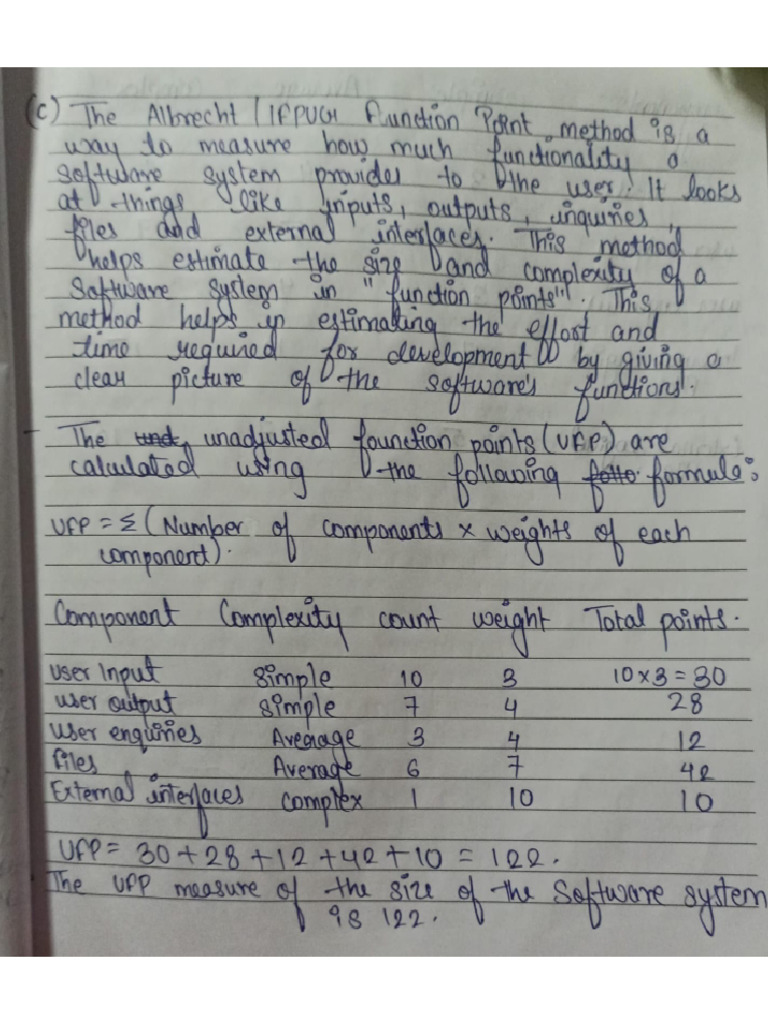 (c) The Albrecht / IFPUG Function Point method is a
way to measure how much functionality a
software system provides to the user. It looks
at things like inputs, outputs, inquiries,
files and external interfaces. This method
helps estimate the size and complexity of a
software system in "function points". This
method helps in estimating the effort and
time required for development by giving a
clear picture of the software's functions.
- The unadjusted founction points (UFP) are
calculated using the following formula:
UFP = Σ (Number of components × weights of each
component).
Component Complexity count weight Total points.
User Input Simple 10 3 10×3=30
user output Simple 7 4 28
User enquiries Average 3 4 12
files Average 6 7 42
External interfaces complex 1 10 10
UFP = 30+28+12+42+10 = 122.
The UFP measure of the size of the software system
is 122.